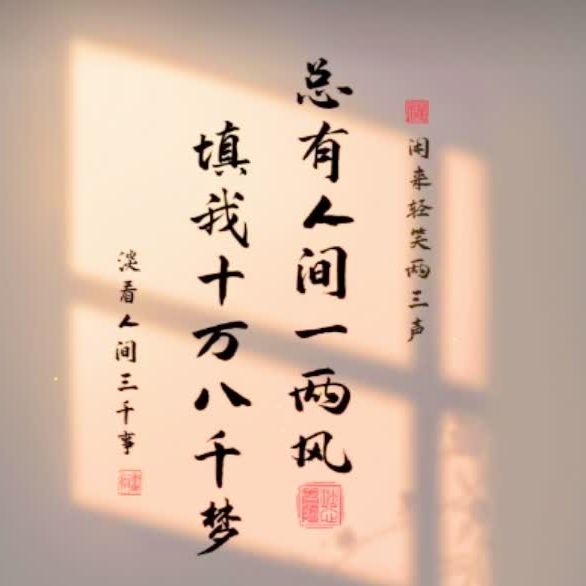 闲来轻笑两三声
总有人间一两风
填我十万八千梦
淡看人间三千事